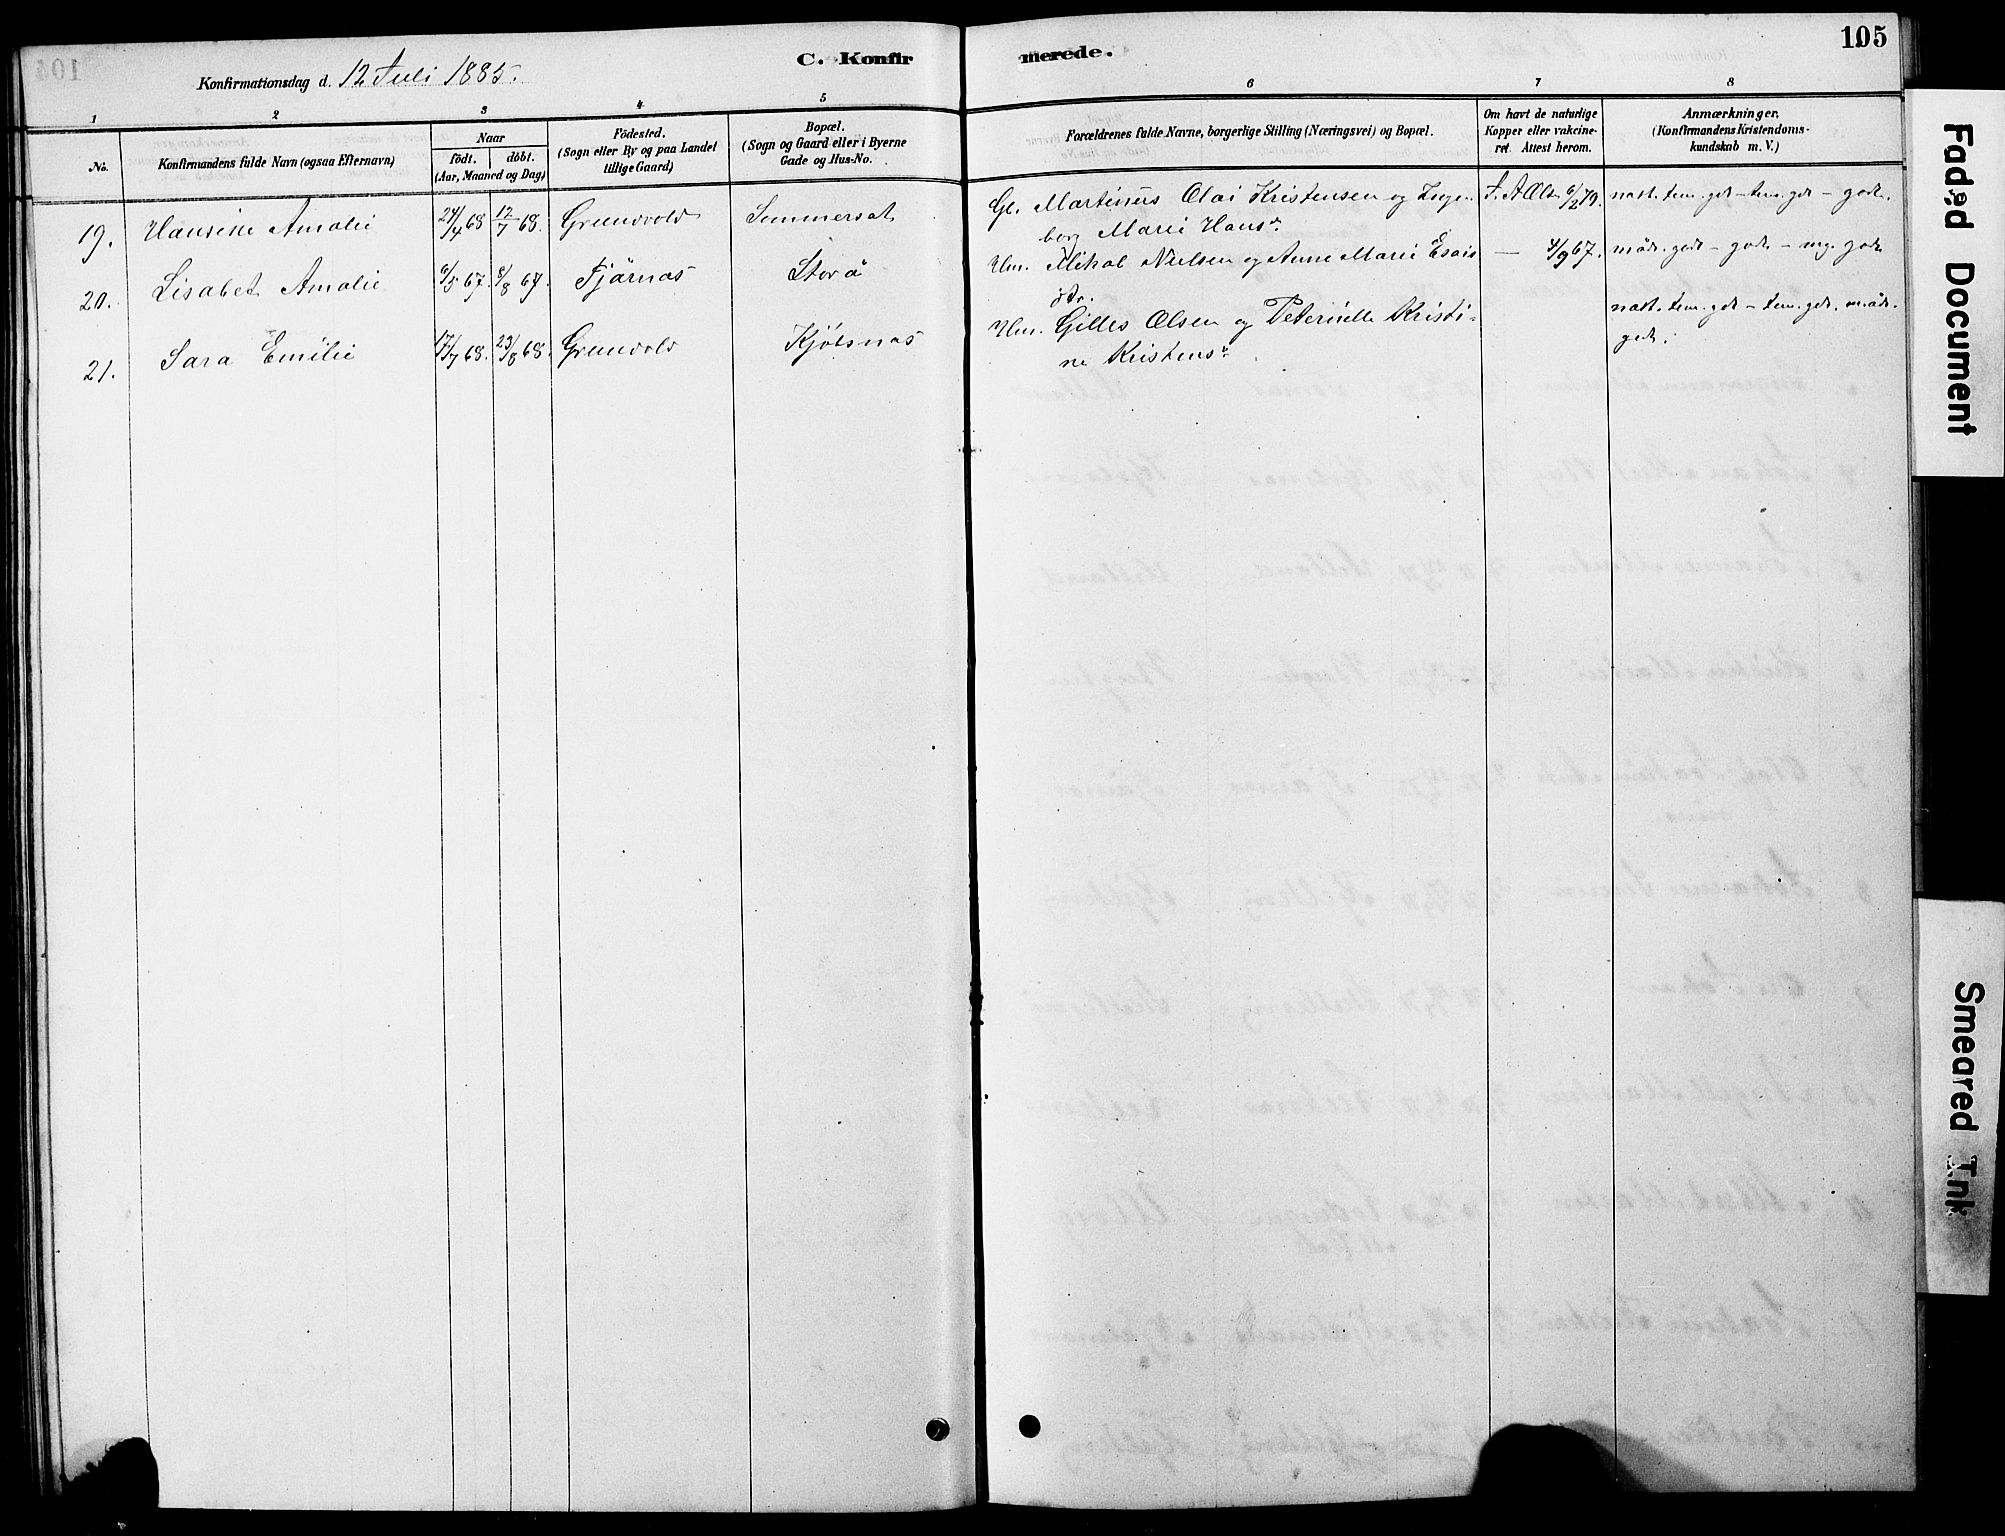 105
C. Konfir merede.
Konfirmationsdag d. 12 Juli 1885.
1 2 3 4 5 6 7 8
No.
Konfirmandens fulde Navn (ogsaa Efternavn)
Naar
födt. döbt.
(Aar, Maaned og Dag)
Födested.
(Sogn eller By og paa Landet
tillige Gaard)
Bopæl.
(Sogn og Gaard eller i Byerne
Gade og Hus-No.
Forældrenes fulde Navne, borgerlige Stilling (Næringsvei) og Bopæl.
Om havt de naturlige
Kopper eller vakcine-
ret. Attest herom.
Anmærkninger.
(Konfirmandens Kristendoms-
kundskab m. V.)
19. Hansine Amalie 24/4 68 12/7 68. Grundvold Sommerset Gl. Martinus Olai Kristensen og Inge- 6/2 79.
borg Marie Hansdr.
20. Lisabet Amalie 6/5 67. 8/8 67. Tjärnas Storå Um. Mikal Nielsen og Anne Marie Esais — 4/9 67. måd. godt – godt – mg. godt
dtr.
21. Sara Emilie 17/7 68. 23/8 68. Grundvold Kjölsnas Um. Gilles Olsen og Peternille Kristi-
ne Kristensdr.
godt.
Faded Document
Smeared Ink